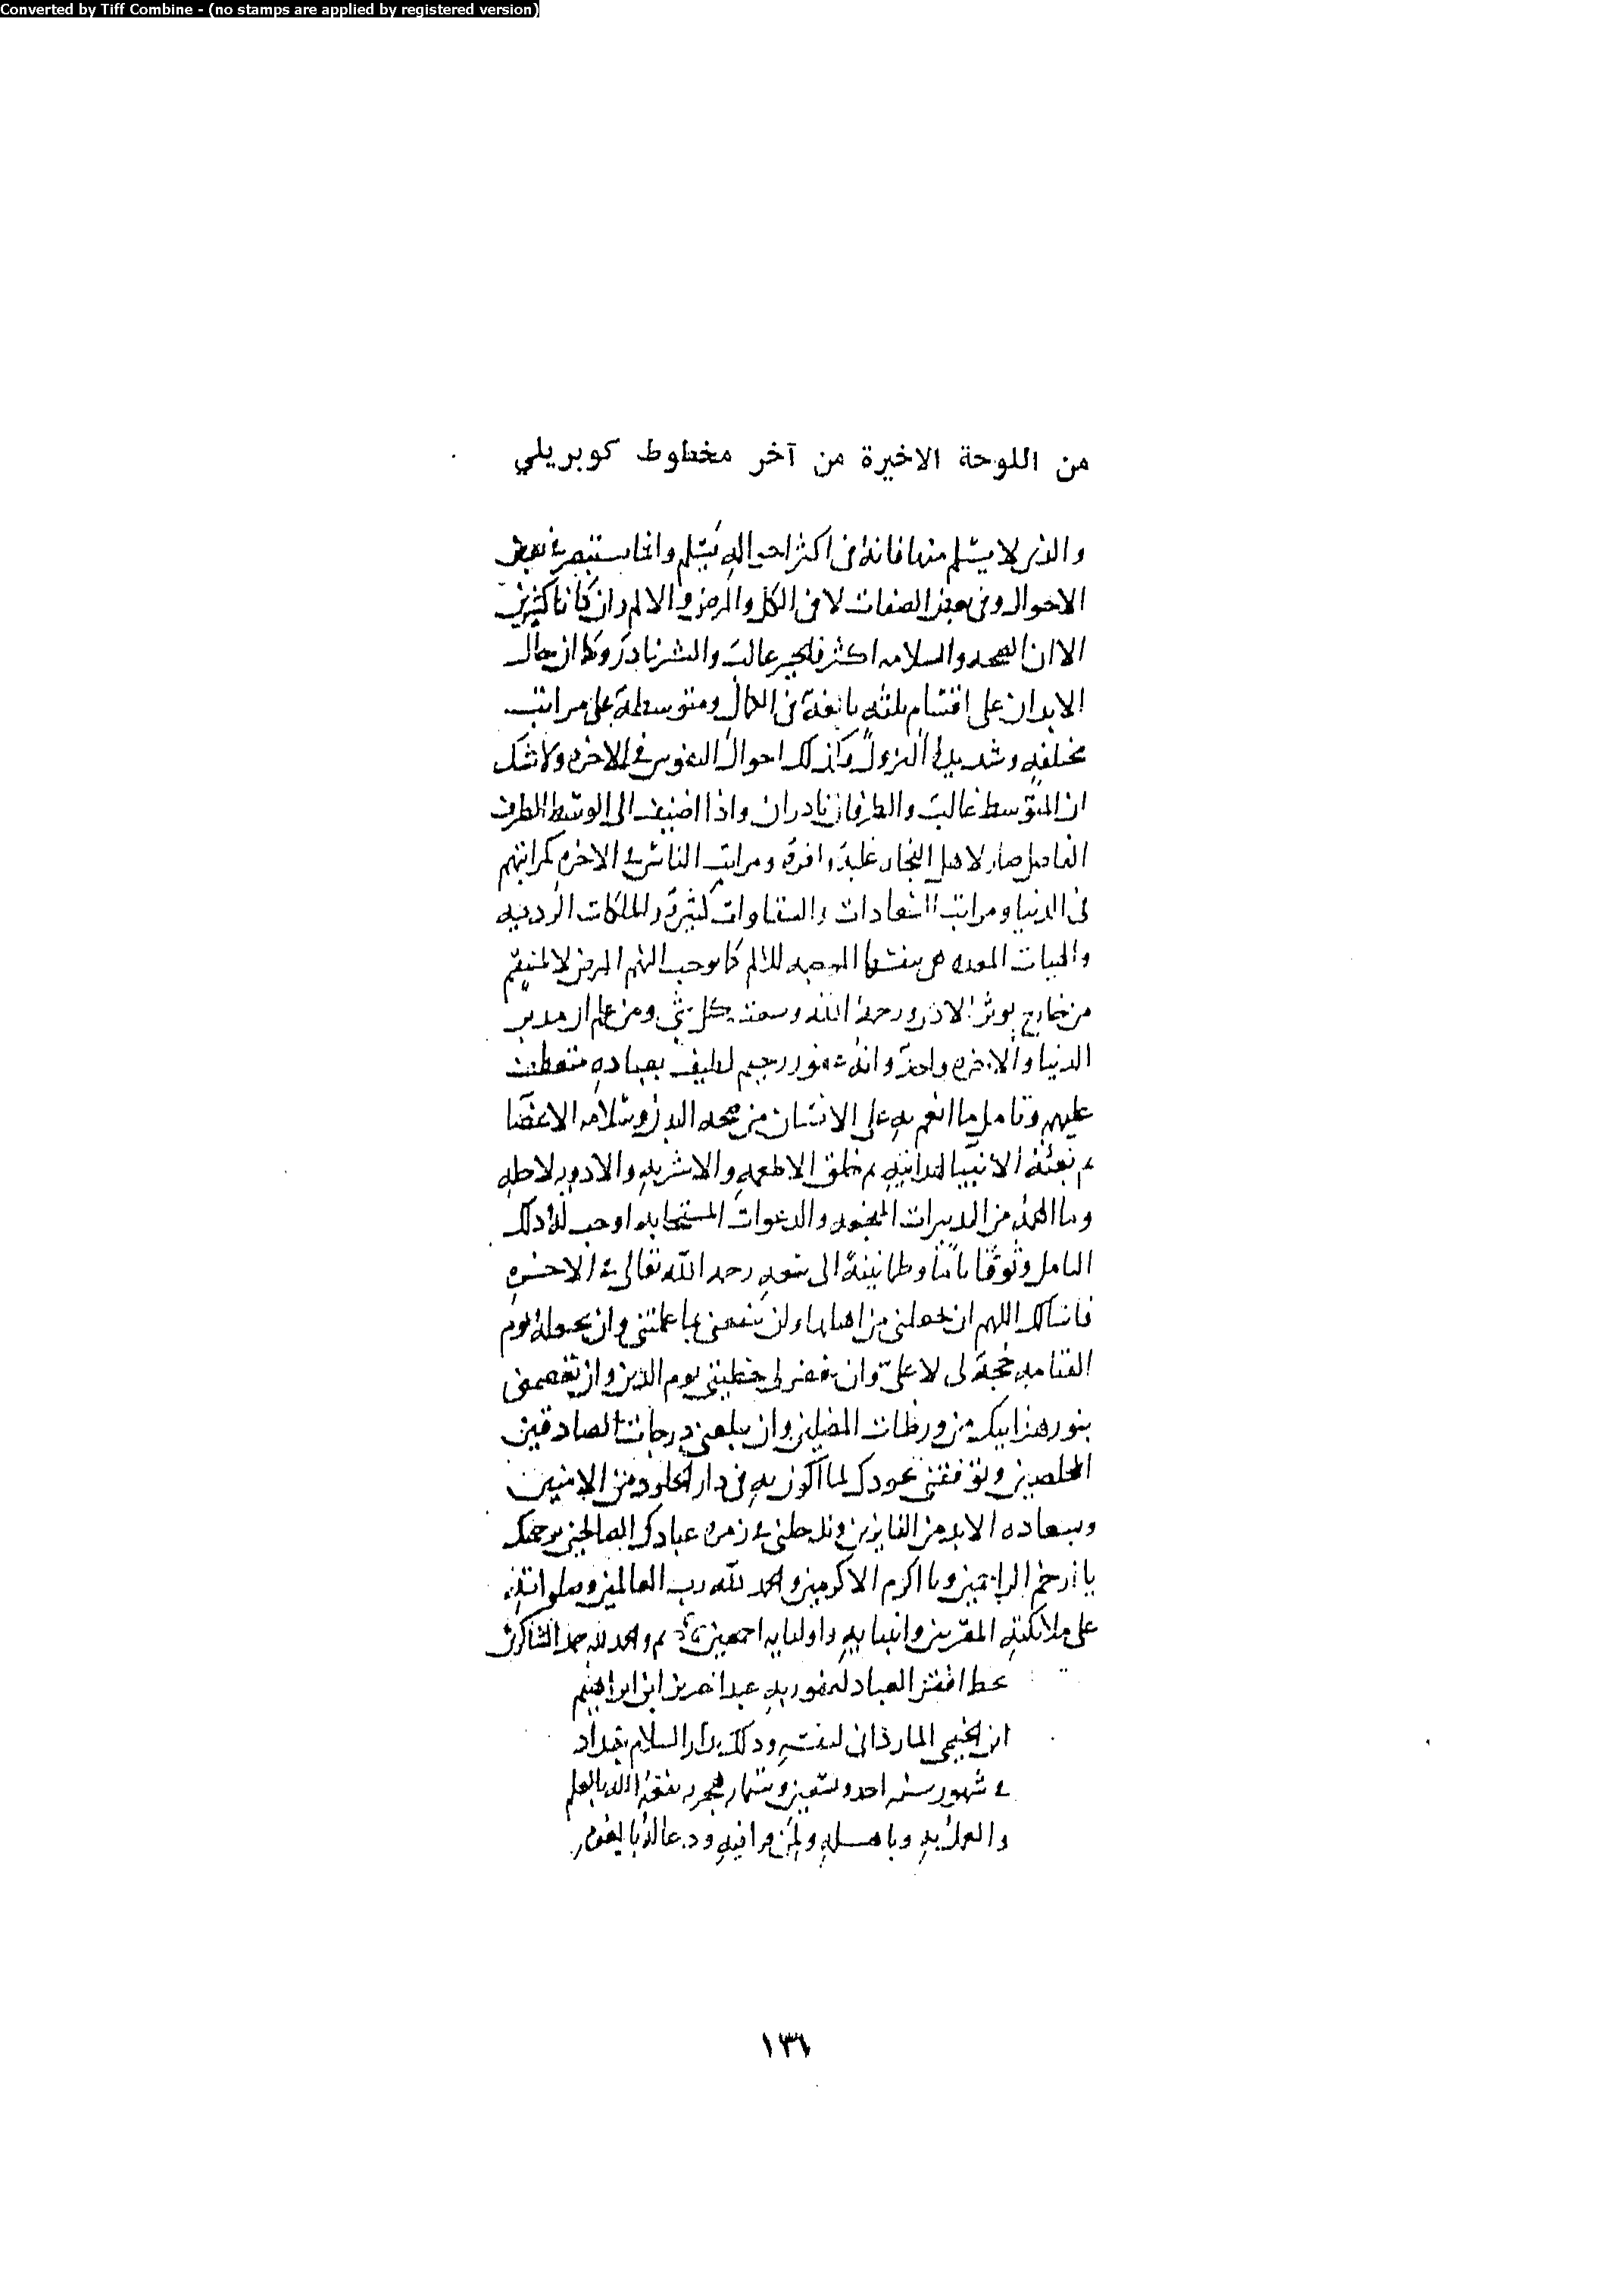 Converted by Tiff Combine - (no stamps are applied by registered version)
من اللوحة الاخيرة من آخر مخطوط كوبريلي
والذى لا يسلم منها فانه فى اكثر احواله يسلم وانما يستضر فى بعض
الاحوال وفى بعض الصفات لا فى الكل والمرض والالم وان كانا كثيرين
الا ان الصحه والسلامه اكثر فالخير غالب والشر نادر وكما ان حال
الابدان على اقسام ثلثه بالغة فى الكمال ومتوسطة على مراتب
مختلفه وشديده النزول وكذلك احوال النفوس فى الاخره ولا شك
ان المتوسط غالب والطرفان نادران واذا اضيف الى الوسط الطرف
الفاضل صار لاهل النجاه غلبة وافرة ومراتب الناس فى الاخره كمراتبهم
فى الدنيا ومراتب السعادات والشقاوات كثيرة والملكات الرديه
والهيات المعده هى بنفسها الموجبه للالم كما يوجب النهم المرض لا لمنتقم
من خارج يوثر الاذى ورحمة الله وسعت كل شى ومن علم ان مدبر
الدنيا والاخره واحد وانه غفور رحيم لطيف بعباده متعطف
عليهم وتامل ما انعم به على الانسان من صحه البدن وسلامه الاعضا
ثم بعثة الانبيا لهدايته ثم خلق الاطعمه والاشربه والادويه لاجله
وما الهمه من التدبيرات والدعوات المستجابه اوجب له ذلك
التامل وثوقا تاما وطمانينة الى سعه رحمه الله تعالى فى الاخره
فاسالك اللهم ان تجعلنى من اهلها وان تنفعنى بما علمتنى وان تجعله يوم
القيامه حجة لى لا على وان تغفر لى خطيئتى يوم الدين وان تعصمنى
بنور هدايتك من ورطات المضلين وان تبلغنى درجات الصادقين
المخلصين وتوفقنى بجودك لما اكون به فى دار الخلود من الامنين
وبسعاده الابد من الفايزين وتدخلنى فى زمره عبادك الصالحين برحمتك
يا ارحم الراحمين ويا اكرم الاكرمين والحمد لله رب العالمين وصلواته
على ملائكته المقربين وانبيايه واوليايه اجمعين تم والحمد لله حمد الشاكرين
بخط افقر العباد لعفو ربه عبد العزيز ابن ابراهيم
ابن الخيمى الماردانى لنفسه وذلك بدار السلام بغداد
فى شهور سنه احد وتسعين وستمايه هجريه نفعه الله بالعلم
والعمل به وباهله ولمن قرا فيه ودعا له بالعفو
١٣٦